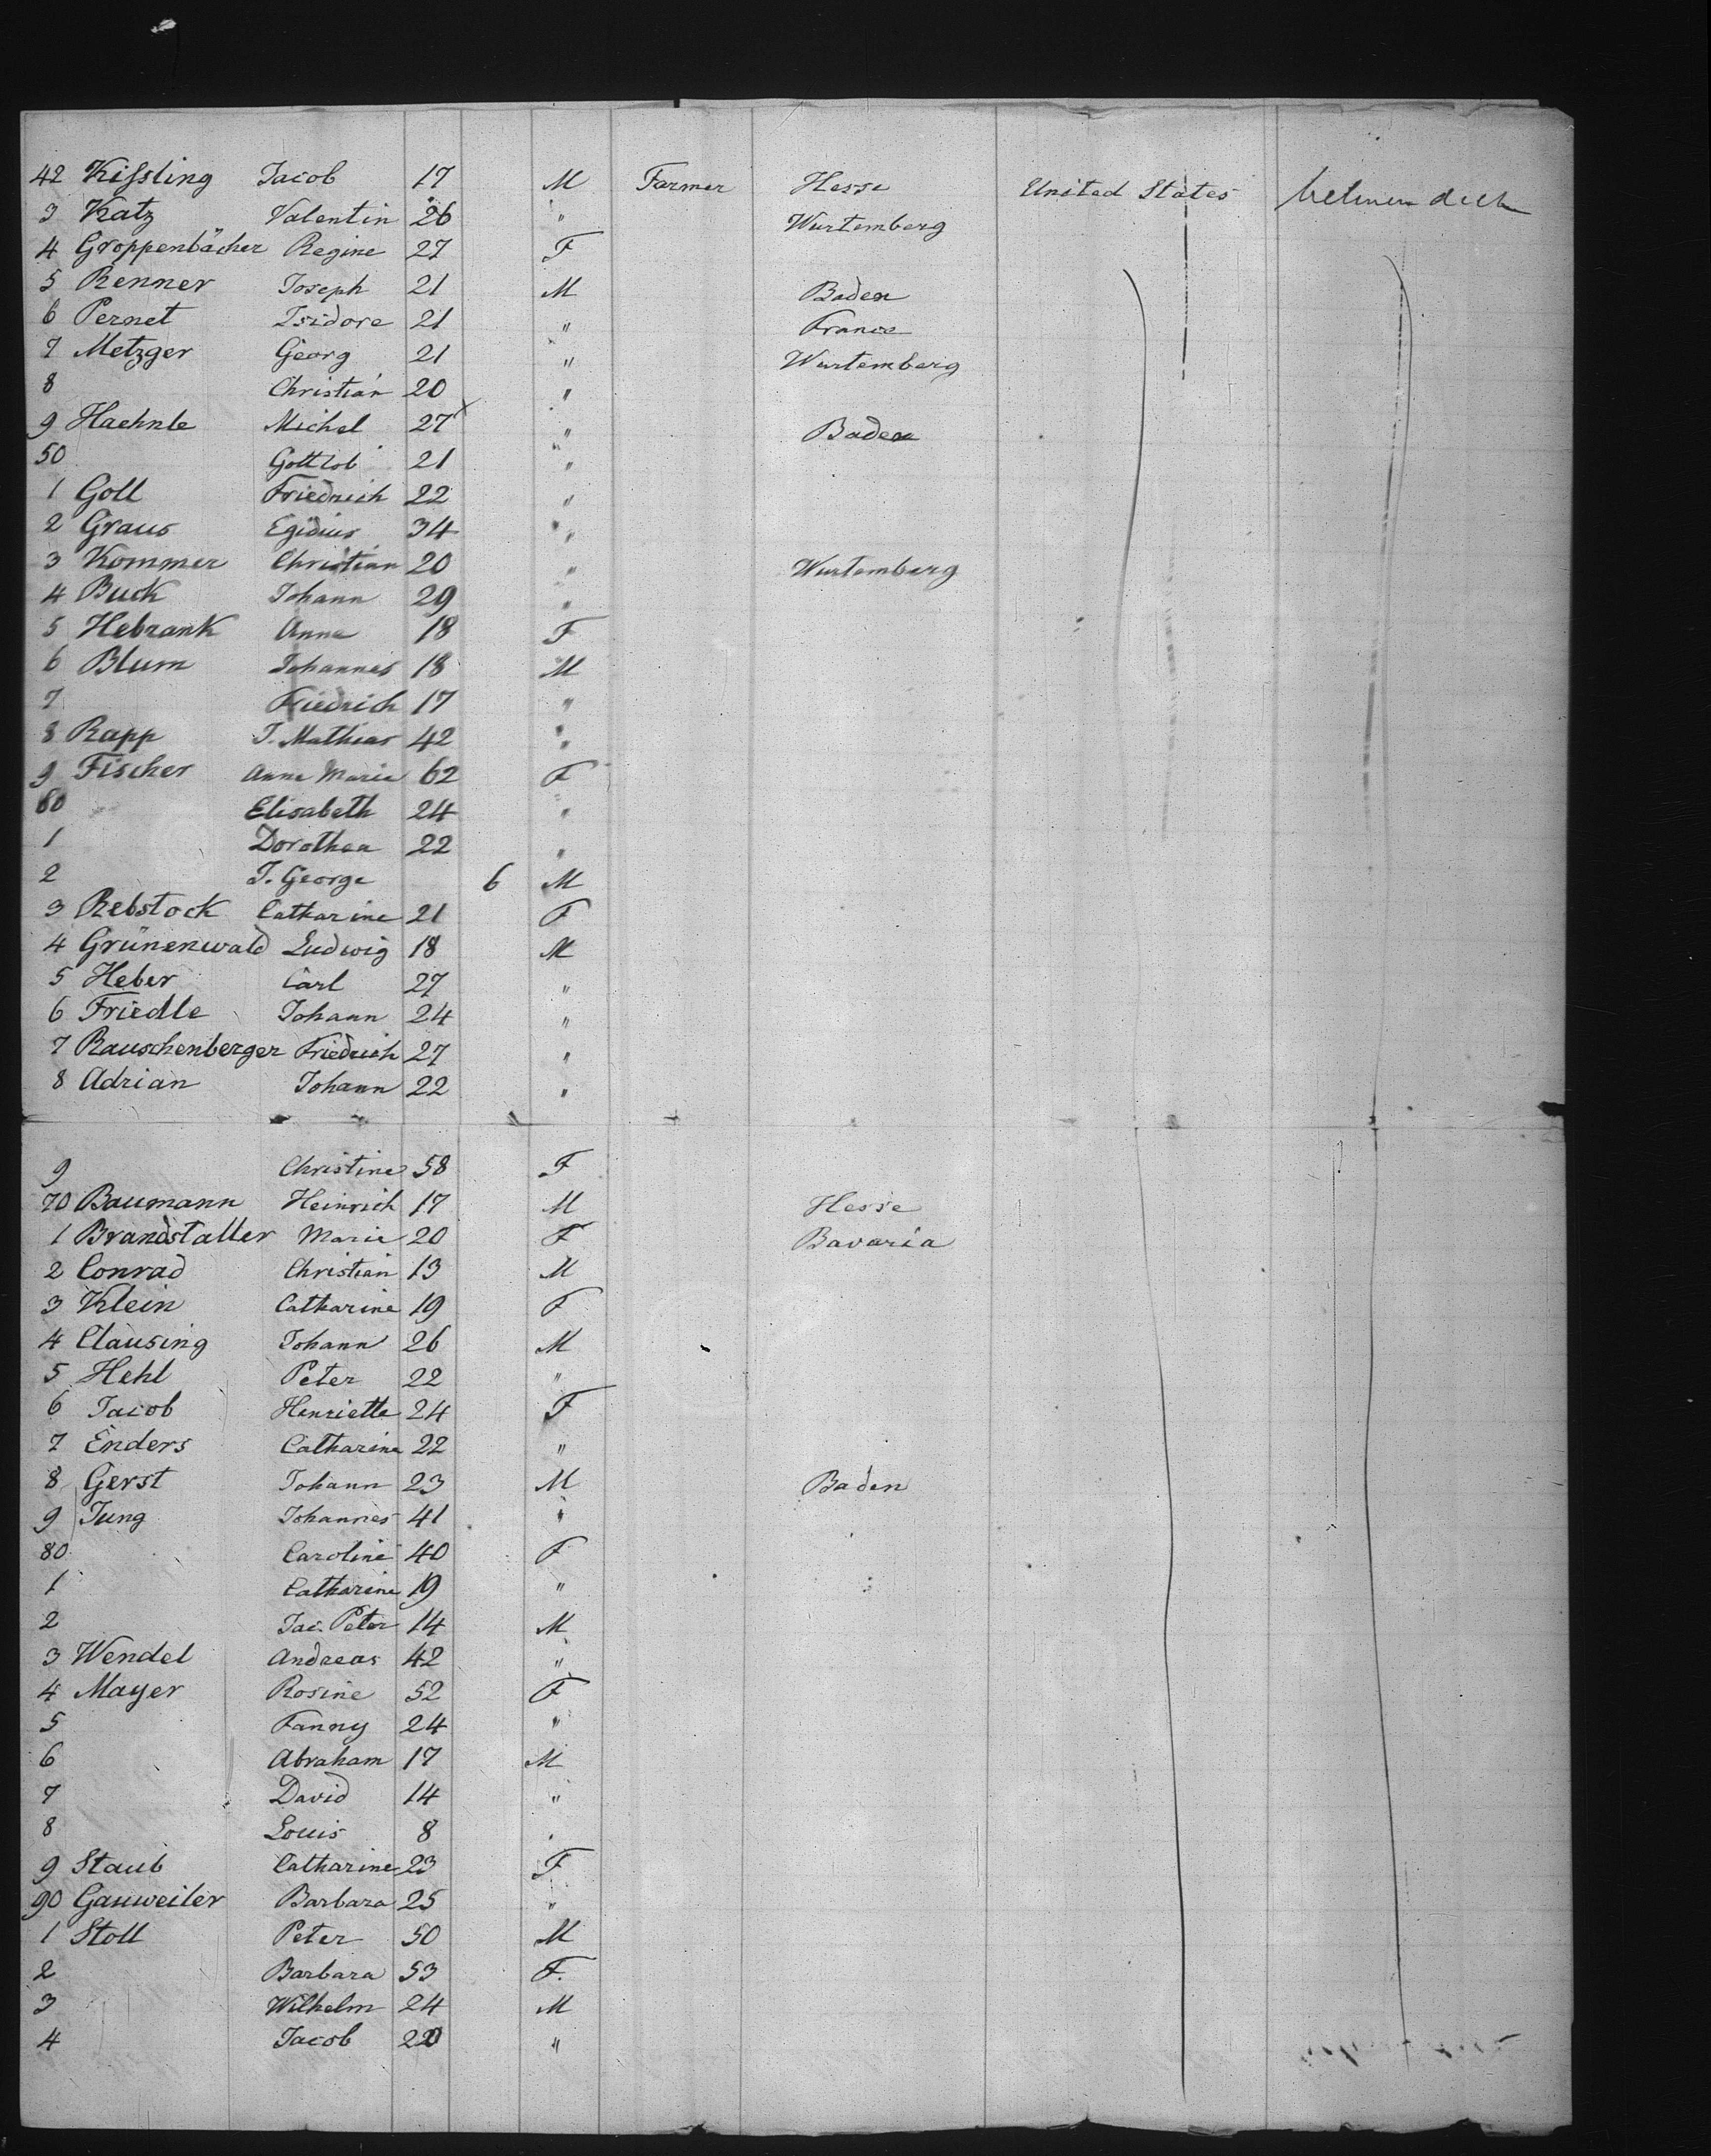 42 Kissling Jacob 17 M Farmer Hesse United States between deck
3 Katz Valentin 26 " Wurtemberg
4 Groppenbächer Regine 27 F
5 Renner Joseph 21 M Baden
6 Pernet Isidore 21 " France
7 Metzger Georg 21 " Wurtemberg
8 Christian 20 "
9 Haehnle Michel 27 " Baden
50 Gottlob 21 "
1 Goll Friedrich 22 "
2 Graus Egidius 34 "
3 Kommer Christian 20 " Wurtemberg
4 Buck Johann 29 "
5 Hebrank Anna 18 F
6 Blum Johannes 18 M
7 Friedrich 17 "
8 Rapp J. Mathias 42 "
9 Fischer Anna Marie 62 F
60 Elisabeth 24 "
1 Dorothea 22 "
2 J. George 6 M
3 Rebstock Catharine 21 F
4 Grünenwald Ludwig 18 M
5 Heber Carl 27 "
6 Friedle Johann 24 "
7 Rauschenberger Friedrich 27 "
8 Adrian Johann 22 "
9 Christine 58 F
70 Baumann Heinrich 17 M Hesse
1 Brandstatter Marie 20 F Bavaria
2 Conrad Christian 13 M
3 Klein Catharine 19 F
4 Clausing Johann 26 M
5 Hehl Peter 22 "
6 Jacob Henriette 24 F
7 Enders Catharine 22 "
8 Gerst Johann 23 M Baden
9 Jung Johannes 41 "
80 Caroline 40 F
1 Catharine 19 "
2 Jac. Peter 14 M
3 Wendel Andreas 42 "
4 Mayer Rosine 52 F
5 Fanny 24 "
6 Abraham 17 M
7 David 14 "
8 Louis 8 "
9 Staub Catharine 23 F
90 Gauweiler Barbara 25 "
1 Stoll Peter 50 M
2 Barbara 53 F.
3 Wilhelm 24 M
4 Jacob "